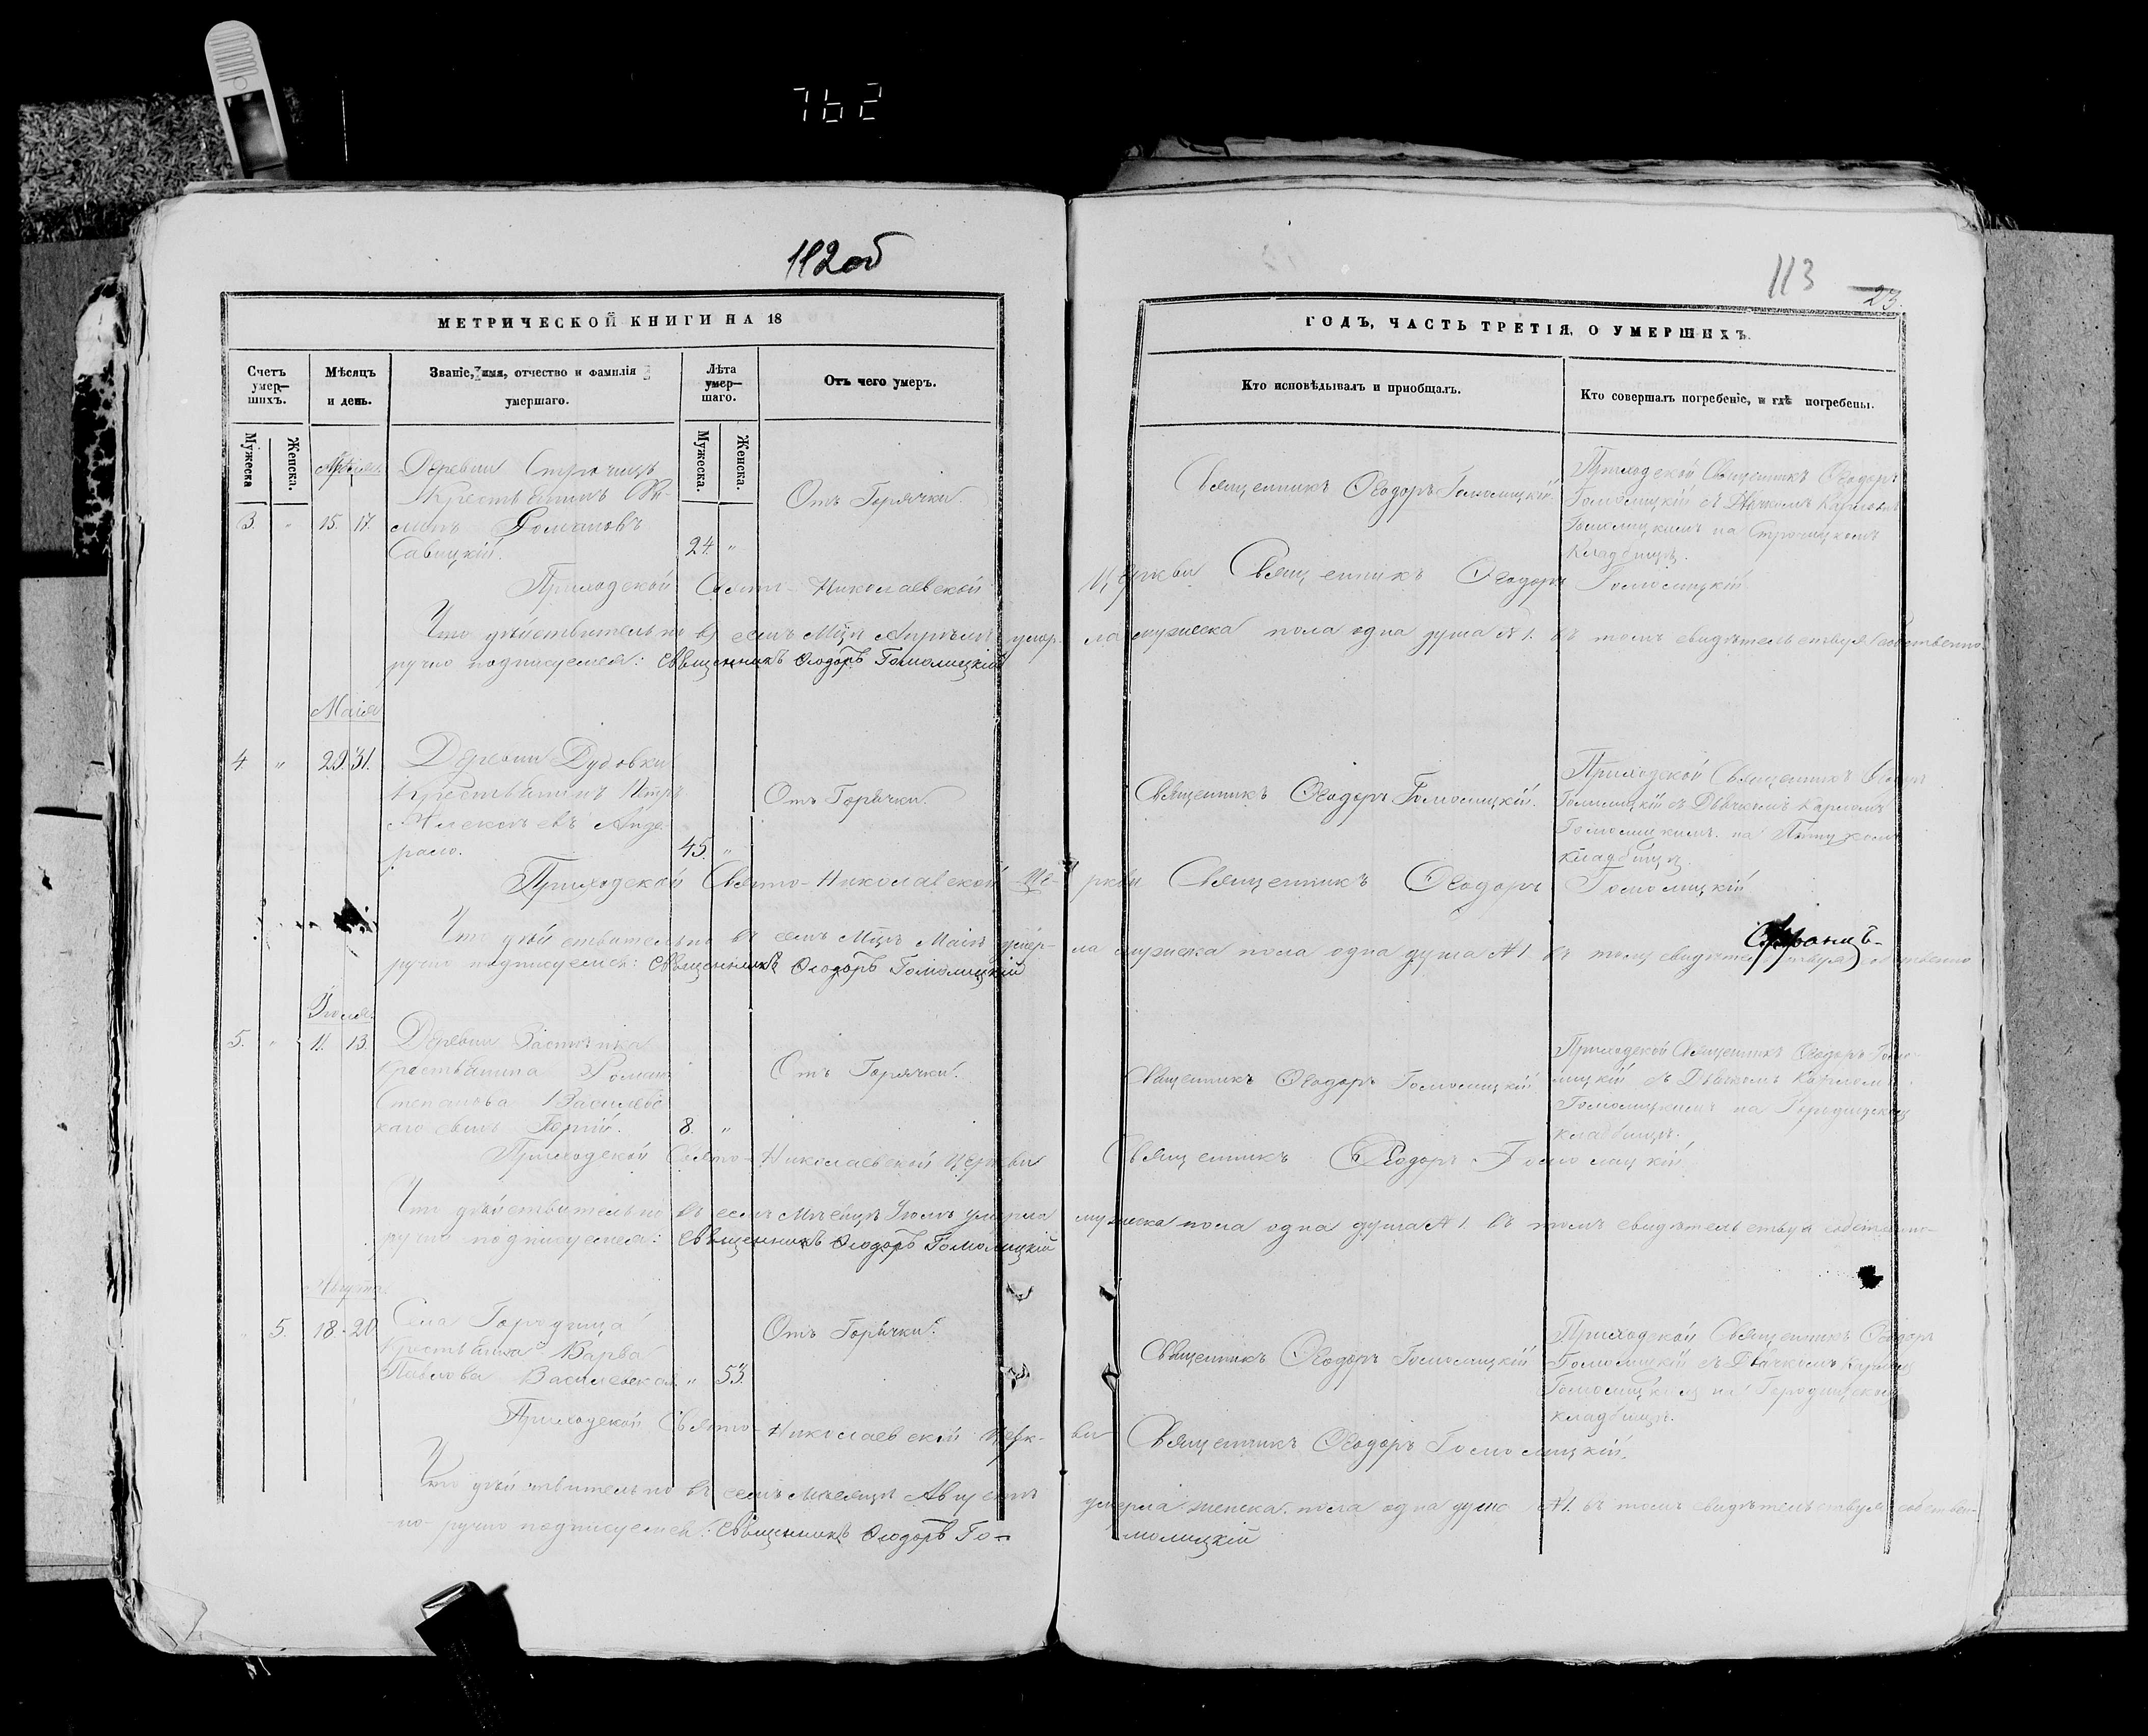 762
112об
113
23.
МЕТРИЧЕСКОЙ КНИГИ НА 18
ГОДЪ, ЧАСТЬ ТРЕТІЯ, О УМЕРШИХЪ.
Счетъ умер—шихъ.
Мѣсяцъ и день.
Званіе, имя, отчество и фамилія умершаго.
Лѣта умер—шаго.
Отъ чего умеръ.
Кто исповѣдывалъ и пріобщалъ.
Кто совершалъ погребеніе, и гдѣ погребены.
Мужеска
Женска.
Мужеска.
Женска.
Апрѣля.
3. " 15. 17.
Деревни
Крестьянинъ
Романовъ
Савицкій.
24. "
Отъ Горячки.
Священникъ Ѳеодоръ Гомолицкій.
Приходской Священникъ Ѳеодоръ
Гомолицкій съ Дьячкомъ
Гомолицкимъ на
Кладбищѣ.
Приходской Свято-Николаевской Церкви Священникъ Ѳеодоръ Гомолицкій
Что дѣйствительно въ семъ Мцѣ Апрѣлѣ умер-ла мужеска пола одна душа №1. въ томъ свидѣтельствуя собственно-
ручно подписуемся: Священникъ Ѳеодоръ Гомолицкій
Маія
4 " 29. 31.
Деревни Дубовки
Крестьянинъ Петръ
Алексѣевъ
45. "
Отъ Горячки.
Священникъ Ѳеодоръ Гомолицкій.
Приходской Священникъ Ѳеодоръ
Гомолицкій съ Дьячкомъ
Гомолицкимъ на
кладбищѣ.
Приходской Свято-Николаевской Це-ркви Священникъ Ѳеодоръ Гомолицкій
Что дѣйствительно въ семъ Мцѣ Маіѣ умер-ла мужеска пола одна душа №1 въ томъ
ручно подписуемся: Священникъ Ѳеодоръ Гомолицкій
5. " 11. 13.
Деревни
крестьянина Роман
Степанова
8. "
Отъ Горячки.
Священникъ Ѳеодоръ Гомолицкій
Приходской Священникъ Ѳеодоръ Гомо-
лицкій съ Дьячкомъ
Гомолицкимъ на
кладбищѣ.
Приходской Свято-Николаевской Церкви Священникъ Ѳеодоръ Гомолицкій
Что дѣйствительно въ семъ Мѣсяцѣ умерла мужеска пола одна душа №1. въ томъ свидѣтельствуя собственно-
ручно подписуемся: Священникъ Ѳеодоръ Гомолицкій
Августа.
5. 18. 20
Села Городища
Крестьянка Варва
Павлова
" 53.
Отъ Горячки.
Священникъ Ѳеодоръ Гомолицкій
Приходской Священникъ Ѳеодоръ
Гомолицкій съ Дьячкомъ
Гомолицкимъ на
кладбищѣ.
Приходской Свято-Николаевской Церк-ви Священникъ Ѳеодоръ Гомолицкій.
Что дѣйствительно въ семъ Мѣсяцѣ Августѣ умерла женска пола одна душа №1. въ томъ свидѣтельствуя собствен-
но-ручно подписуемся: Священникъ Ѳеодоръ Го-молицкій